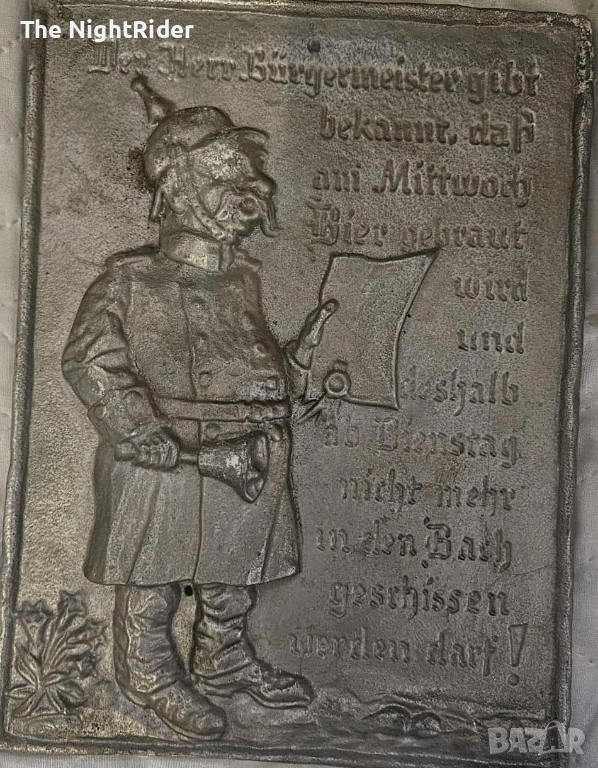 The NightRider
Der Herr Bürgermeister gibt
bekannt, daß
am Mittwoch
Bier gebraut
wird
und
deshalb
ab Dienstag
nicht mehr
in den Bach
geschissen
werden darf!
BAZAR